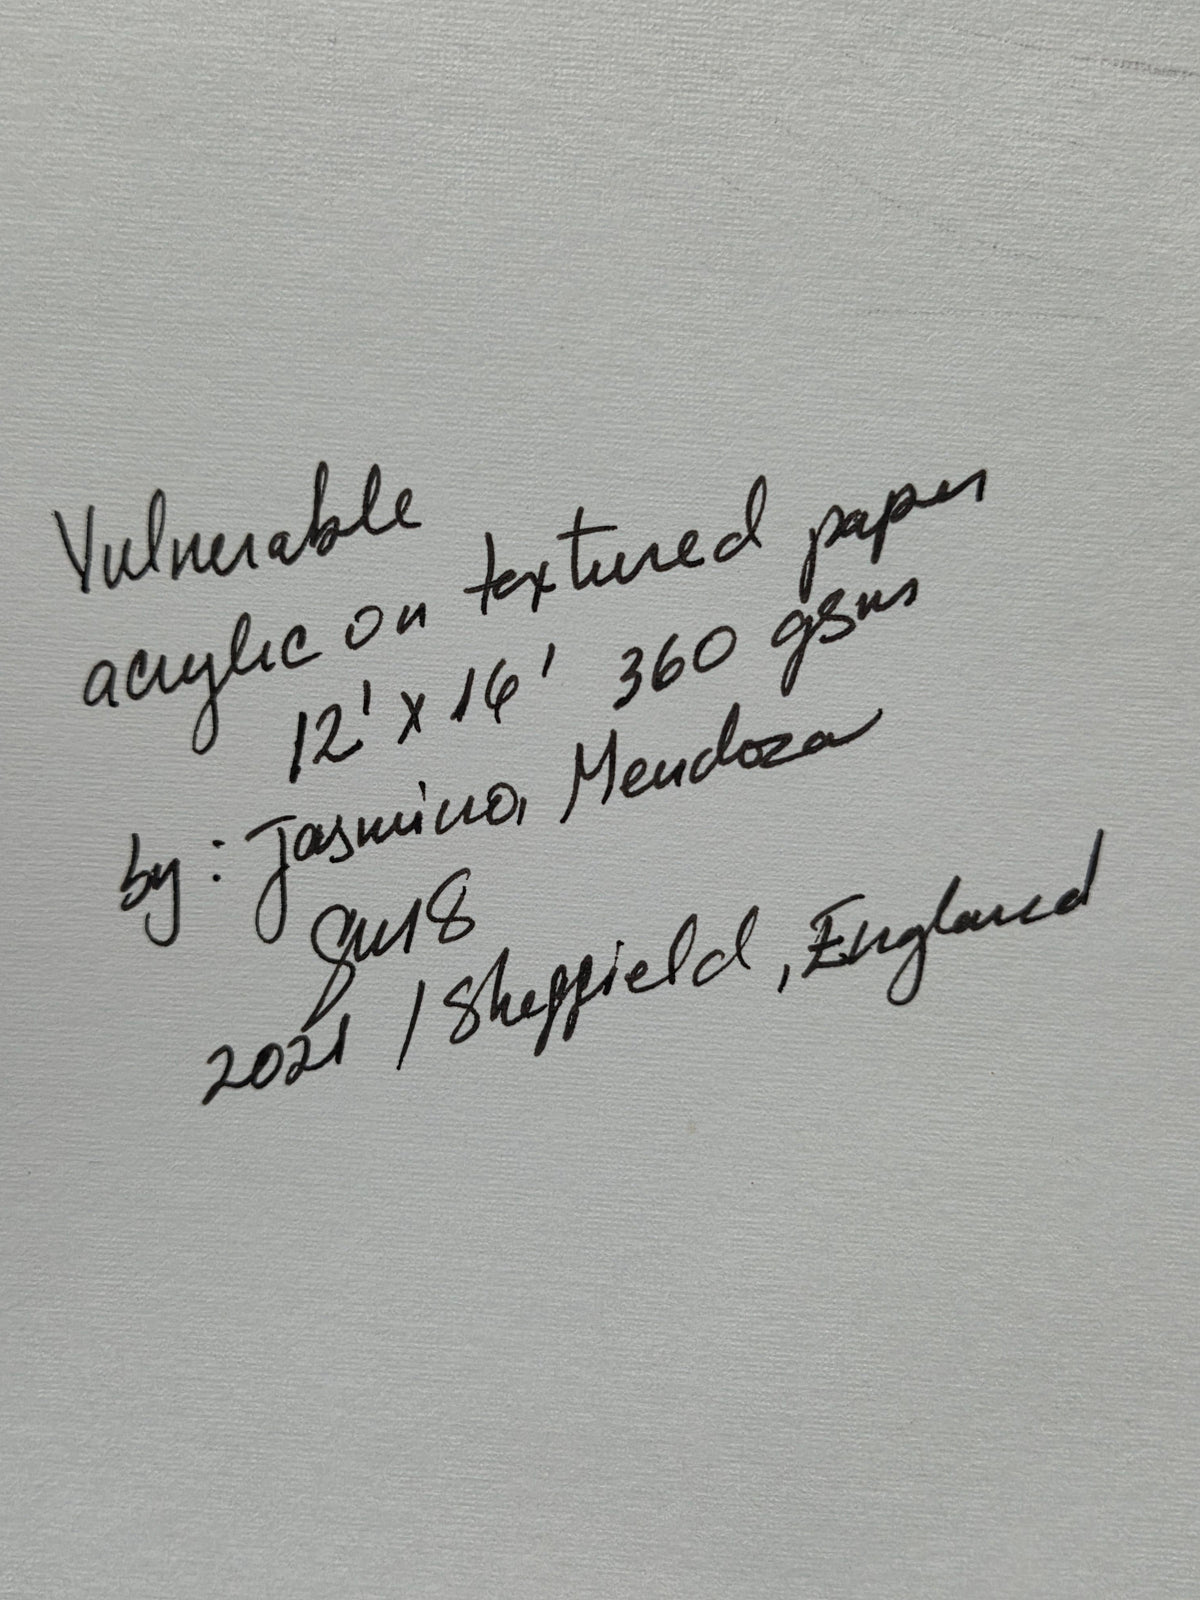 Vulnerable
acrylic on textured paper
12'x16' 360 gsm
by: Jasmina Mendoza
2021 / Sheffield, England